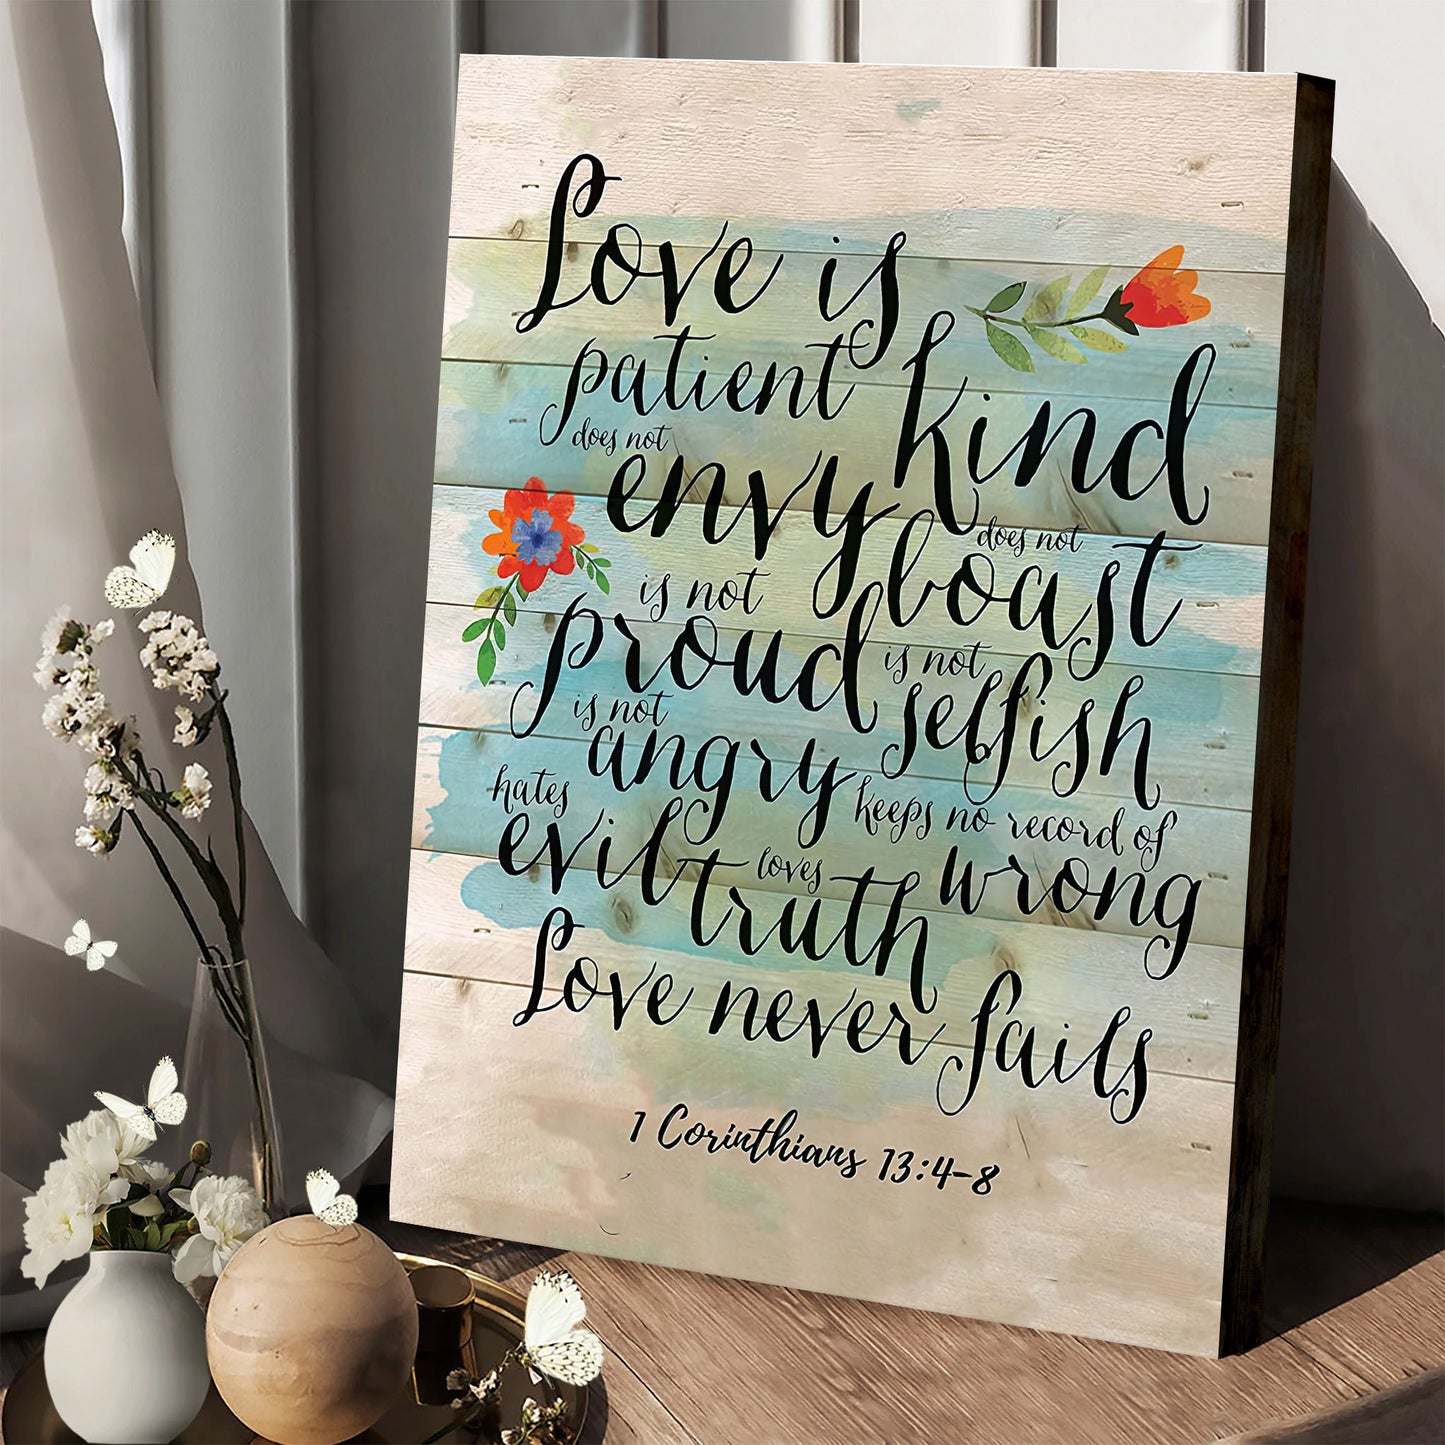 Love is
patient kind
does not
envy does not
is not boast
proud is not
is not selfish
angry
hates keeps no record of
evil loves wrong
truth
Love never fails
1 Corinthians 13:4-8